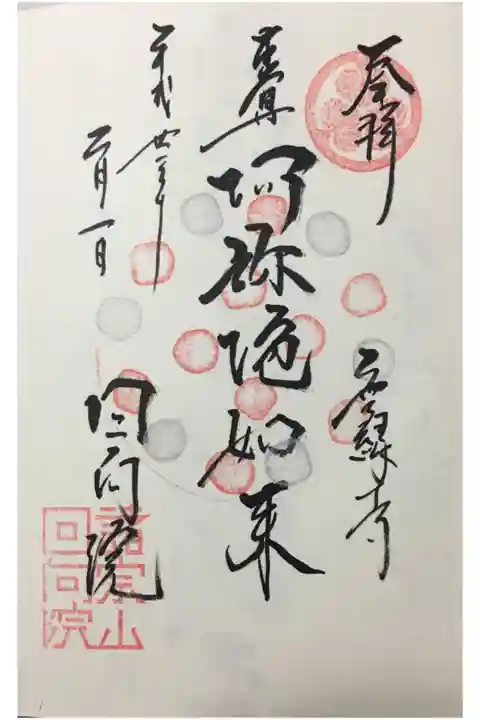 奉拝
無縁寺
本尊
阿弥陀如来
平成廿三年
二月一日
回向院
諸宗山
回向院